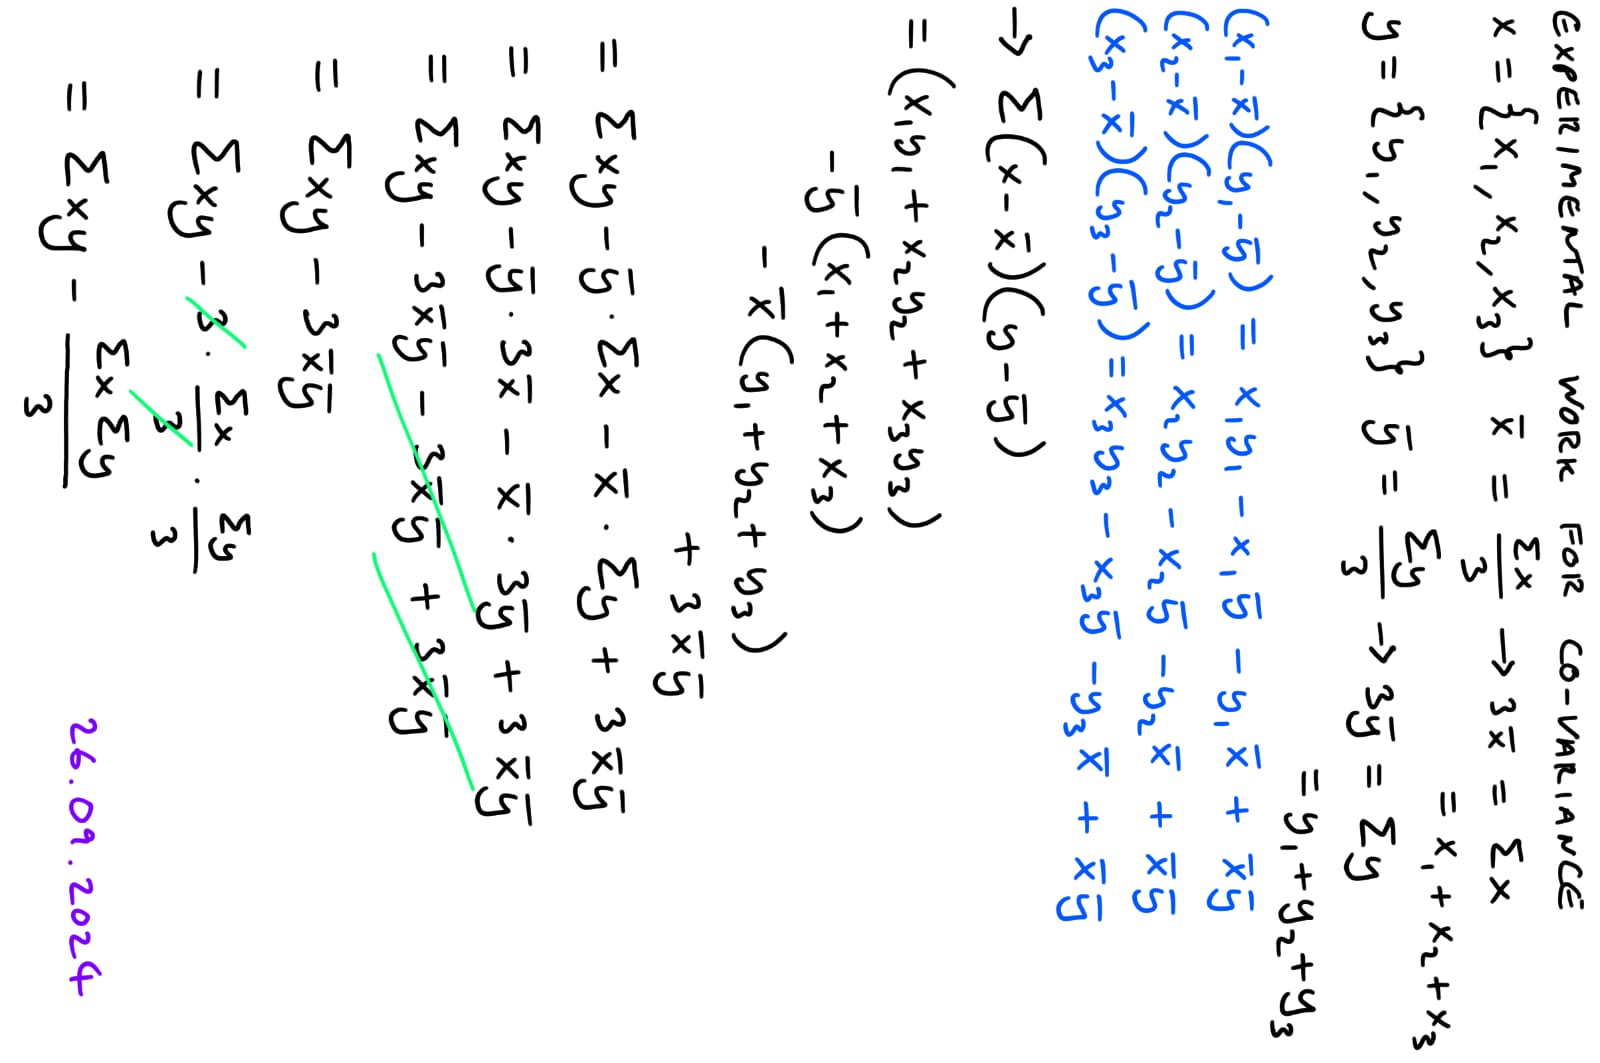 EXPERIMENTAL WORK FOR CO-VARIANCE
x = {x₁, x₂, x₃} x̄ = Σx/3 → 3x̄ = Σx
= x₁ + x₂ + x₃
y = {y₁, y₂, y₃} ȳ = Σy/3 → 3ȳ = Σy
= y₁ + y₂ + y₃
(x₁ - x̄)(y₁ - ȳ) = x₁y₁ - x₁ȳ - y₁x̄ + x̄ȳ
(x₂ - x̄)(y₂ - ȳ) = x₂y₂ - x₂ȳ - y₂x̄ + x̄ȳ
(x₃ - x̄)(y₃ - ȳ) = x₃y₃ - x₃ȳ - y₃x̄ + x̄ȳ
→ Σ(x - x̄)(y - ȳ)
= (x₁y₁ + x₂y₂ + x₃y₃)
- ȳ(x₁ + x₂ + x₃)
- x̄(y₁ + y₂ + y₃)
+ 3x̄ȳ
= Σxy - ȳ · Σx - x̄ · Σy + 3x̄ȳ
= Σxy - ȳ · 3x̄ - x̄ · 3ȳ + 3x̄ȳ
= Σxy - 3x̄ȳ - 3x̄ȳ + 3x̄ȳ
= Σxy - 3x̄ȳ
= Σxy - 3 · Σx/3 · Σy/3
= Σxy - ΣxΣy/3
26.09.2024